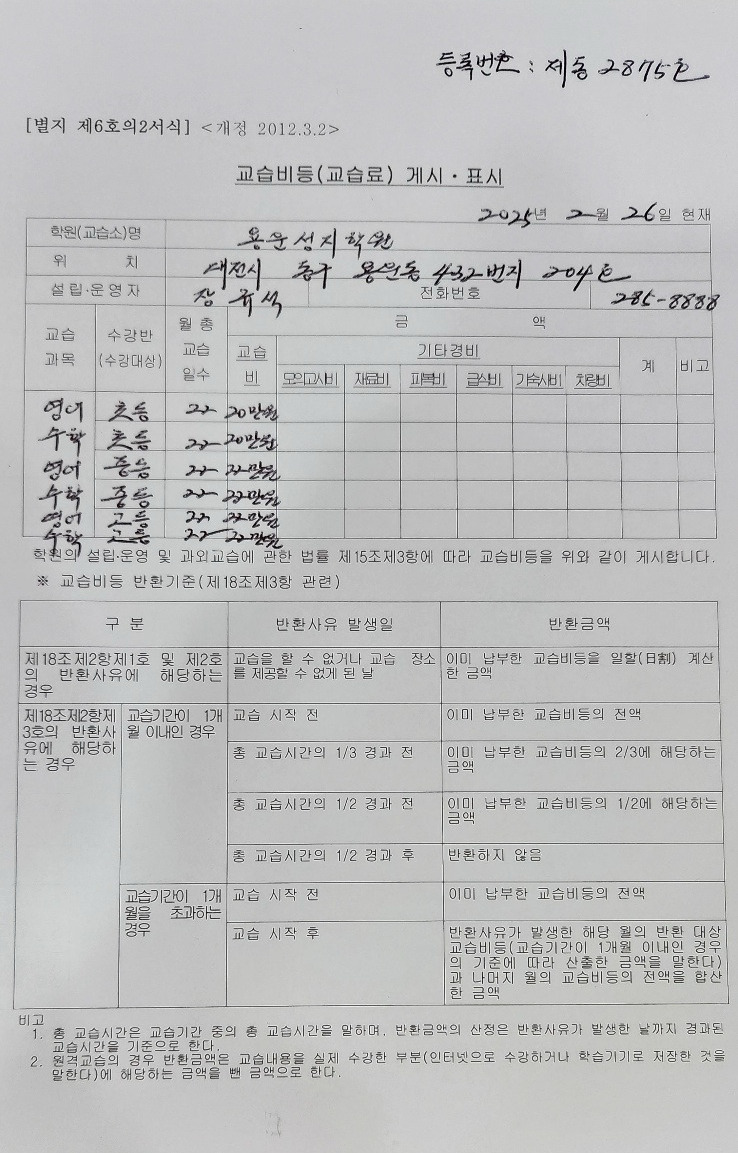 등록번호 : 제동 2875호
[별지 제6호의2서식] <개정 2012.3.2>
교습비등(교습료) 게시·표시
2025년 2월 26일 현재
학원(교습소)명 용운성지학원
위 치 대전시 동구 용운동 432번지 204호
설립·운영자 장규석 전화번호 285-8888
교습 과목 수강반 (수강대상) 월 총 교습 일수 금 액
교습비 기타경비 계 비고
모의고사비 재료비 피복비 급식비 기숙사비 차량비
영어 초등 22 20만원
수학 초등 22 20만원
영어 중등 22 22만원
수학 중등 22 22만원
영어 고등 22 22만원
수학 고등 22 22만원
학원의 설립·운영 및 과외교습에 관한 법률 제15조제3항에 따라 교습비등을 위와 같이 게시합니다.
※ 교습비등 반환기준(제18조제3항 관련)
구 분 반환사유 발생일 반환금액
제18조제2항제1호 및 제2호의 반환사유에 해당하는 경우 교습을 할 수 없거나 교습 장소를 제공할 수 없게 된 날 이미 납부한 교습비등을 일할(日割) 계산한 금액
제18조제2항제3호의 반환사유에 해당하는 경우 교습기간이 1개월 이내인 경우 교습 시작 전 이미 납부한 교습비등의 전액
총 교습시간의 1/3 경과 전 이미 납부한 교습비등의 2/3에 해당하는 금액
총 교습시간의 1/2 경과 전 이미 납부한 교습비등의 1/2에 해당하는 금액
총 교습시간의 1/2 경과 후 반환하지 않음
교습기간이 1개월을 초과하는 경우 교습 시작 전 이미 납부한 교습비등의 전액
교습 시작 후 반환사유가 발생한 해당 월의 반환 대상 교습비등(교습기간이 1개월 이내인 경우의 기준에 따라 산출한 금액을 말한다)과 나머지 월의 교습비등의 전액을 합산한 금액
비고
1. 총 교습시간은 교습기간 중의 총 교습시간을 말하며, 반환금액의 산정은 반환사유가 발생한 날까지 경과된
교습시간을 기준으로 한다.
2. 원격교습의 경우 반환금액은 교습내용을 실제 수강한 부분(인터넷으로 수강하거나 학습기기로 저장한 것을
말한다)에 해당하는 금액을 뺀 금액으로 한다.